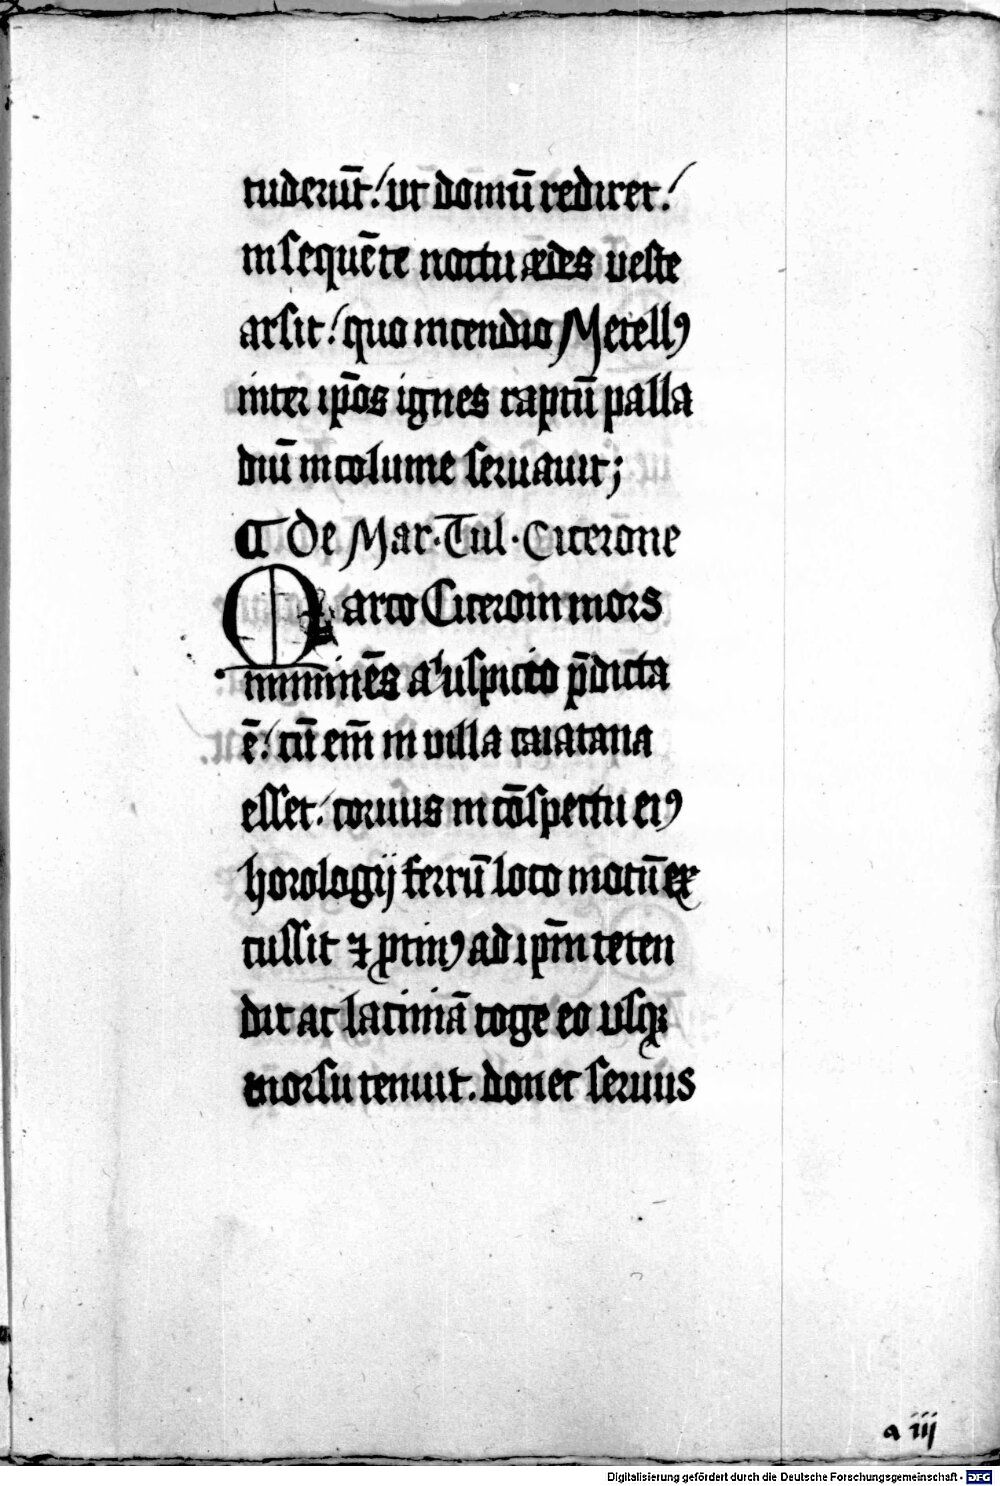 tuderūt:/ ut domū rediret:/
insequēte noctu ædes veste
arsit:/ quo incendio Metellꝰ
inter ip̄os ignes raptū palla
diū incolume seruauit;
¶ De Mar. Tul. Cicerone
Marco Ciceroni mors
imminēs auspicio p̄dicta
ē:/ cū em̄ in villa caiatana
esset:/ coruus in cōspectu eiꝰ
horologij ferrū loco motū ex
cussit ⁊ ꝓtinꝰ ad ip̄m teten
dit ac laciniā toge eo usqꝫ
morsu tenuit. donec seruus
a iij
Digitalisierung gefördert durch die Deutsche Forschungsgemeinschaft - DFG